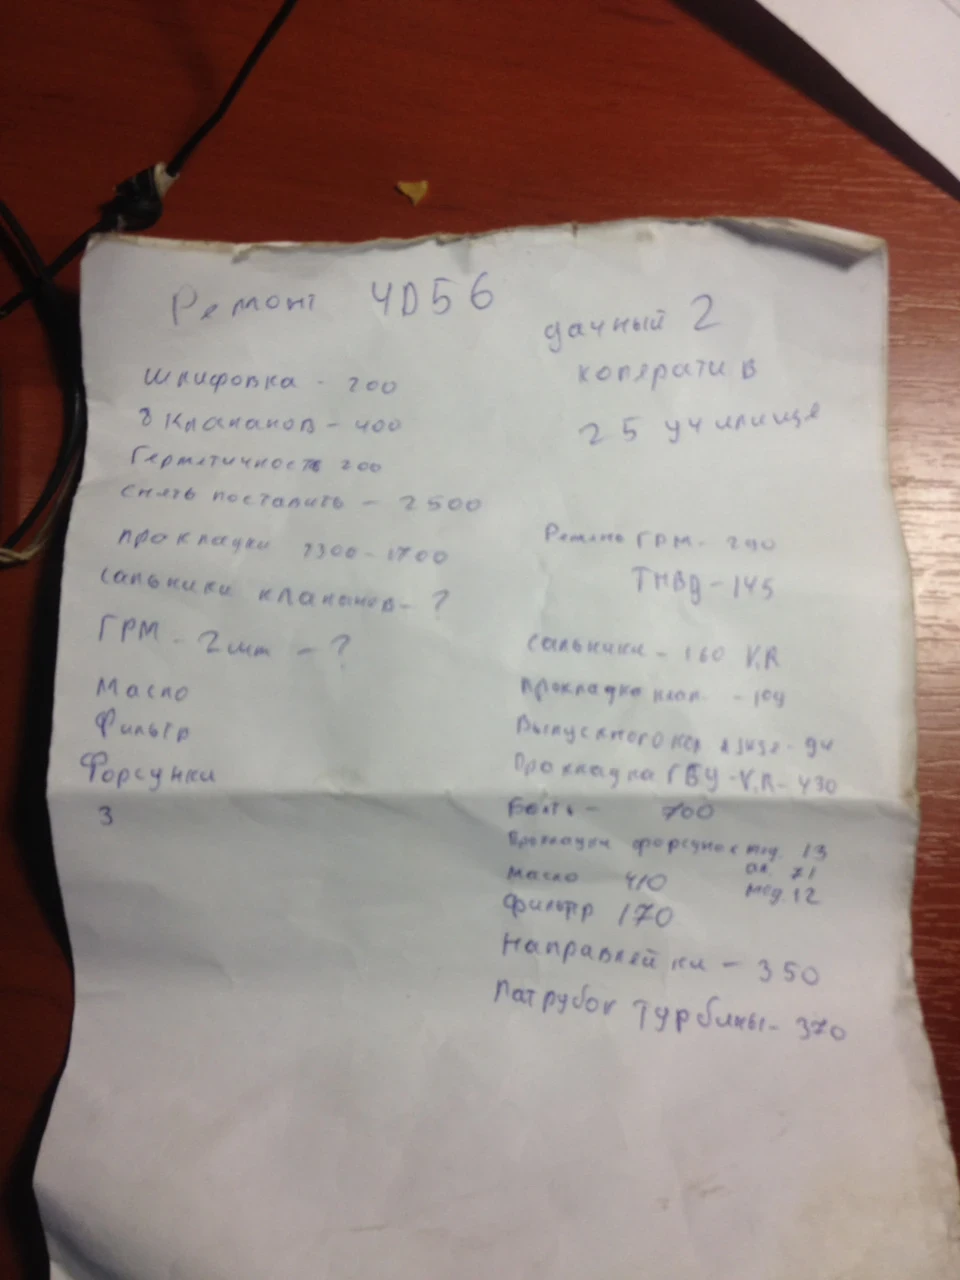 Ремонт 4D56
Шлифовка - 200
8 клапанов - 400
Герметичность 200
снять поставить - 2500
прокладки 1300-1700
сальники клапанов - ?
ГРМ - 2 шт - ?
Масло
Фильтр
Форсунки
3
дачный 2
коператив
25 училище
Ремень ГРМ - 290
ТНВД - 145
сальники - 160 V.R
прокладка клап. - 104
Выпускного кол - 94
Прокладка ГБУ - V.R - 430
Болты - 700
Прокладки форсунок мед. 13
ал. 71
мед. 12
масло 410
фильтр 170
Направляй кл - 350
Патрубок турбины - 370